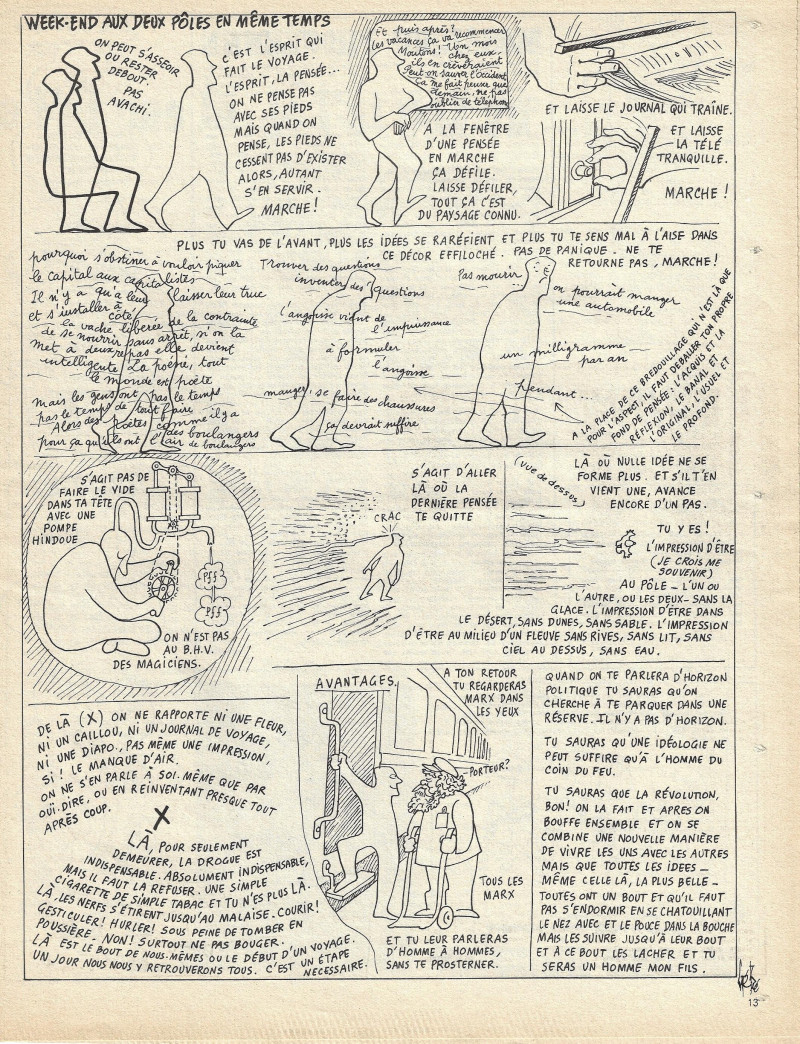 WEEK-END AUX DEUX PÔLES EN MÊME TEMPS
ON PEUT S'ASSEOIR
OU RESTER
DEBOUT.
PAS
AVACHI.
C'EST L'ESPRIT QUI
FAIT LE VOYAGE.
L'ESPRIT, LA PENSÉE...
ON NE PENSE PAS
AVEC SES PIEDS
MAIS QUAND ON
PENSE, LES PIEDS NE
CESSENT PAS D'EXISTER
ALORS, AUTANT
S'EN SERVIR.
MARCHE !
Et puis après ?
les vacances ça va recommencer
Moutons ! Un mois
chez eux,
ils en crèveraient
Peut-on sauver l'occident
ça me fait penser que
demain, ne pas
oublier de téléphon
A LA FENÊTRE
D'UNE PENSÉE
EN MARCHE
ÇA DÉFILE.
LAISSE DÉFILER,
TOUT ÇA C'EST
DU PAYSAGE CONNU.
ET LAISSE LE JOURNAL QUI TRAÎNE.
ET LAISSE
LA TÉLÉ
TRANQUILLE.
MARCHE !
PLUS TU VAS DE L'AVANT, PLUS LES IDÉES SE RARÉFIENT ET PLUS TU TE SENS MAL À L'AISE DANS
CE DÉCOR EFFILOCHÉ. PAS DE PANIQUE. NE TE
RETOURNE PAS, MARCHE !
pourquoi s'obstiner à vouloir piquer
le capital aux capitalistes
Il n'y a qu'à leur laisser leur truc
et s'installer à
côté
la vache libérée de la contrainte
de se nourrir sans arrêt, si on la
met à deux repas elle devient
intelligente La poésie, tout
le monde est poète
Mais les gens ont pas le temps
pas le temps de tout faire
Alors des poètes comme il y a
des boulangers
pour ça qu'ils ont l'air de boulangers
Trouver des questions
inventer des questions
l'angoisse vient de
l'impuissance
à formuler
l'angoisse
manger, se faire des chaussures
ça devrait suffire
Pas mourir
on pourrait manger
une automobile
un milligramme
par an
Pendant...
A LA PLACE DE CE BREDOUILLAGE QUI N'EST LÀ QUE
POUR L'ASPECT, IL FAUT DEBALLER TON PROPRE
FOND DE PENSÉE. L'ACQUIS ET LA
RÉFLEXION, LE BANAL ET
L'ORIGINAL, L'USUEL ET
LE PROFOND.
S'AGIT PAS DE
FAIRE LE VIDE
DANS TA TÊTE
AVEC UNE
POMPE
HINDOUE
Pff
Pff
ON N'EST PAS
AU B.H.V.
DES MAGICIENS.
S'AGIT D'ALLER
LÀ OÙ LA
DERNIÈRE PENSÉE
TE QUITTE
CRAC
(vue de dessus)
LÀ OÙ NULLE IDÉE NE SE
FORME PLUS. ET S'IL T'EN
VIENT UNE, AVANCE
ENCORE D'UN PAS.
TU Y ES !
L'IMPRESSION D'ÊTRE
(JE CROIS ME
SOUVENIR)
AU PÔLE - L'UN OU
L'AUTRE, OU LES DEUX - SANS LA
GLACE. L'IMPRESSION D'ÊTRE DANS
LE DÉSERT, SANS DUNES, SANS SABLE. L'IMPRESSION
D'ÊTRE AU MILIEU D'UN FLEUVE SANS RIVES, SANS LIT, SANS
CIEL AU DESSUS, SANS EAU.
DE LÀ (X) ON NE RAPPORTE NI UNE FLEUR,
NI UN CAILLOU, NI UN JOURNAL DE VOYAGE,
NI UNE DIAPO., PAS MÊME UNE IMPRESSION,
SI ! LE MANQUE D'AIR.
ON NE S'EN PARLE À SOI-MÊME QUE PAR
OUÏ-DIRE, OU EN RÉINVENTANT PRESQUE TOUT
APRÈS COUP.
X
LÀ, POUR SEULEMENT
DEMEURER, LA DROGUE EST
INDISPENSABLE. ABSOLUMENT INDISPENSABLE,
MAIS IL FAUT LA REFUSER. UNE SIMPLE
CIGARETTE DE SIMPLE TABAC ET TU N'ES PLUS LÀ.
LÀ, LES NERFS S'ÉTIRENT JUSQU'AU MALAISE. COURIR !
GESTICULER ! HURLER ! SOUS PEINE DE TOMBER EN
POUSSIÈRE. NON ! SURTOUT NE PAS BOUGER.
LÀ EST LE BOUT DE NOUS-MÊMES OU LE DÉBUT D'UN VOYAGE.
UN JOUR NOUS NOUS Y RETROUVERONS TOUS. C'EST UN ÉTAPE
NÉCESSAIRE.
AVANTAGES.
A TON RETOUR
TU REGARDERAS
MARX DANS
LES YEUX
PORTEUR ?
TOUS LES
MARX
ET TU LEUR PARLERAS
D'HOMME À HOMMES,
SANS TE PROSTERNER.
QUAND ON TE PARLERA D'HORIZON
POLITIQUE TU SAURAS QU'ON
CHERCHE À TE PARQUER DANS UNE
RÉSERVE. IL N'Y A PAS D'HORIZON.
TU SAURAS QU'UNE IDÉOLOGIE NE
PEUT SUFFIRE QU'À L'HOMME DU
COIN DU FEU.
TU SAURAS QUE LA RÉVOLUTION,
BON ! ON LA FAIT ET APRÈS ON
BOUFFE ENSEMBLE ET ON SE
COMBINE UNE NOUVELLE MANIÈRE
DE VIVRE LES UNS AVEC LES AUTRES
MAIS QUE TOUTES LES IDEES -
MÊME CELLE LÀ, LA PLUS BELLE -
TOUTES ONT UN BOUT ET QU'IL FAUT
PAS S'ENDORMIR EN SE CHATOUILLANT
LE NEZ AVEC ET LE POUCE DANS LA BOUCHE
MAIS LES SUIVRE JUSQU'À LEUR BOUT
ET À CE BOUT LES LACHER ET TU
SERAS UN HOMME MON FILS.
13